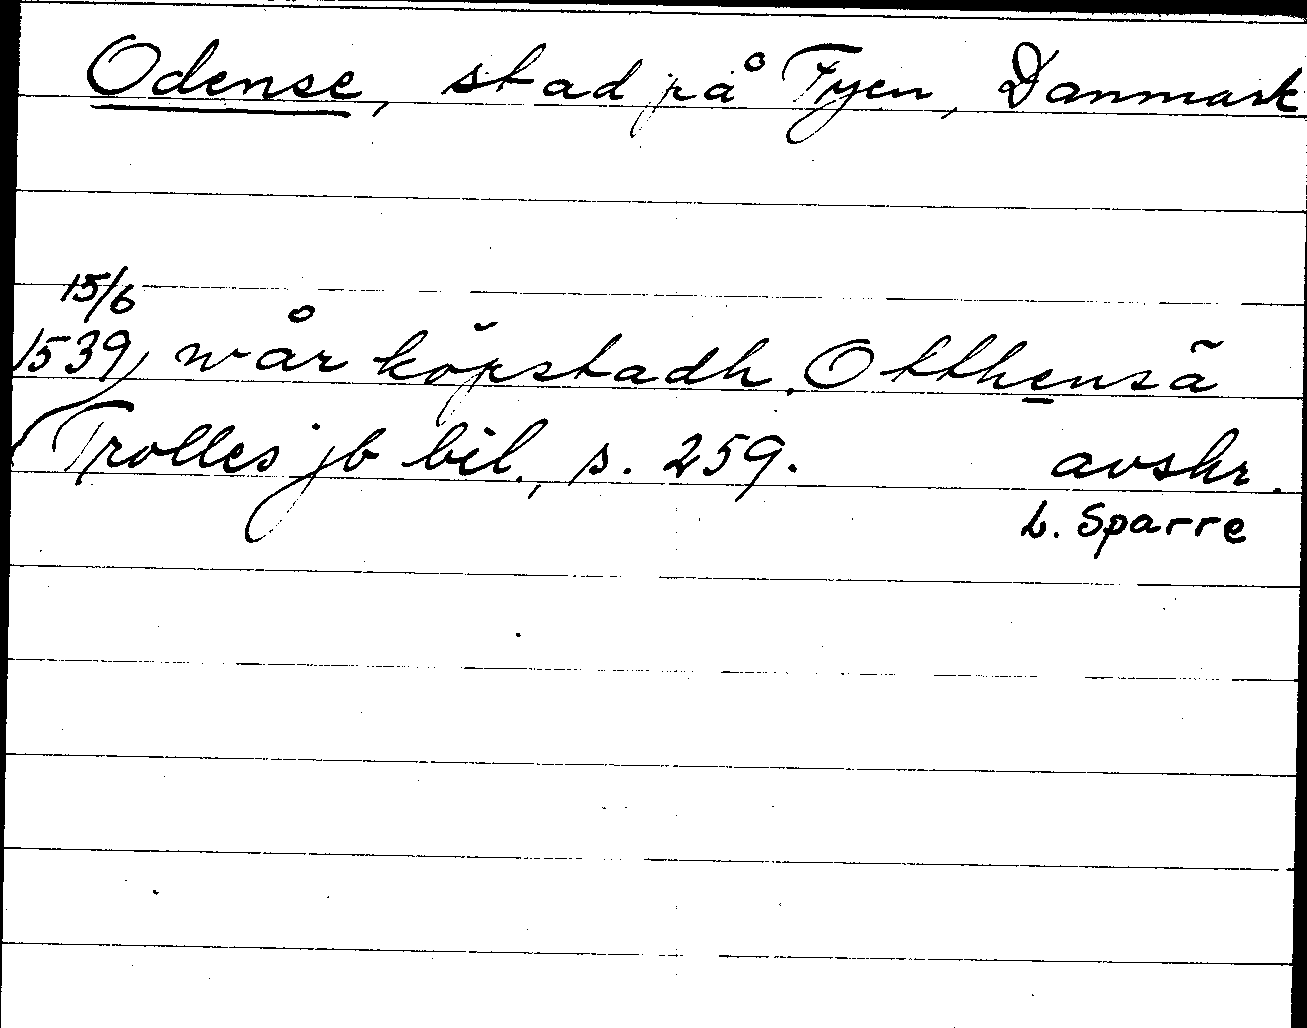 Odense, stad på Fyen, Danmark
15/6
1539, wår köpstadh, Otthensä
(Trolles jb bil., s. 259. avskr.
L. Sparre